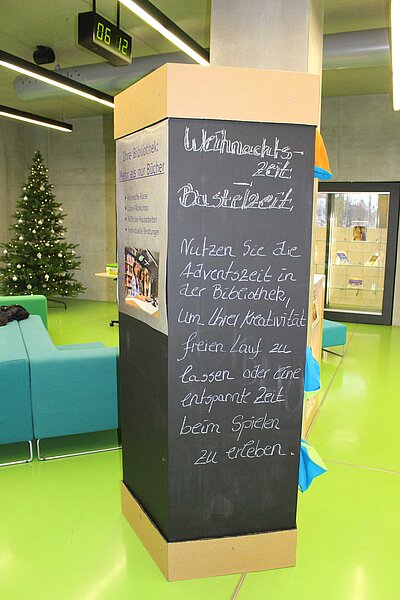 06:42
Ihre Bibliothek:
Mehr als nur Bücher
Hilfe bei Hausarbeiten
Individuelle Beratungen
Weihnachts-
zeit
-
Bastelzeit
Nutzen Sie die
Adventszeit in
der Bibliothek,
um Ihrer Kreativität
freien Lauf zu
lassen oder eine
entspannte Zeit
beim Spielen
zu erleben.